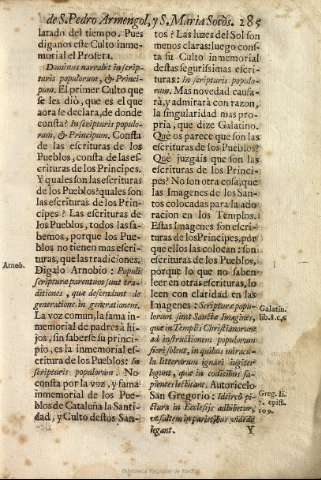 de S. Pedro Armengol, y S. Maria Socós. 285
larado del tiempo. Pues
diganos este Culto inme-
morial el Profeta.
Dominus narrabit in scrip-
turis populorum, & Princi-
pum. El primer Culto que
se les diò, que es el que
aora se declara, de donde
consta? In scripturis populo-
rum, & Principum. Consta
de las escrituras de los
Pueblos, consta de las es-
crituras de los Principes.
Y quales son las escrituras
de los Pueblos? quales son
las escrituras de los Prin-
cipes? Las escrituras de
los Pueblos, todos las sa-
bemos, porque los Pue-
blos no tienen mas escri-
turas, que las tradiciones.
Digalo Arnobio: Populi
scripturæ parentum sunt tra-
ditiones, que descendunt de
generatione in generationem.
La voz comun, la fama in-
memorial de padres à hi-
jos, sin saberse su princi-
pio, es la inmemorial es-
critura de los Pueblos: In
scripturis populorum. No
consta por la voz, y fama
inmemorial de los Pue-
blos de Cataluña la Santi-
dad, y Culto destos San-
Arnob.
tos? Las luzes del Sol son
menos claras: luego cons-
ta su Culto inmemorial
destas segurissimas escri-
turas: In scripturis popolo-
rum. Mas novedad causa-
rà, y admirarà con razon,
la singularidad mas pro-
pria, que dize Galatino.
Què os parece que son las
escrituras de los Pueblos?
Què juzgais que son las
escrituras de los Princi-
pes? No son otra cosa, que
las Imagenes de los San-
tos colocadas para la ado-
racion en los Templos.
Estas Imagenes son escri-
turas de los Principes, por-
que ellos las colocan: son
escrituras de los Pueblos,
porque lo que no saben
leer en otras escrituras, lo
leen con claridad en las
Imagenes: Scripturæ popu-
lorum sunt Sanctæ Imagines,
quæ in Templis Christianorum
ad instructionem populorum
fieri solent, in quibus
litterarum ignari
legunt, quæ in codicibus sa-
pientes lectitant. Autoricelo
San Gregorio: Idcircò pi-
ctura in Ecclesijs adhibetur,
legant.
Y
Galatin.
Greg. li.
7. epist.
109.